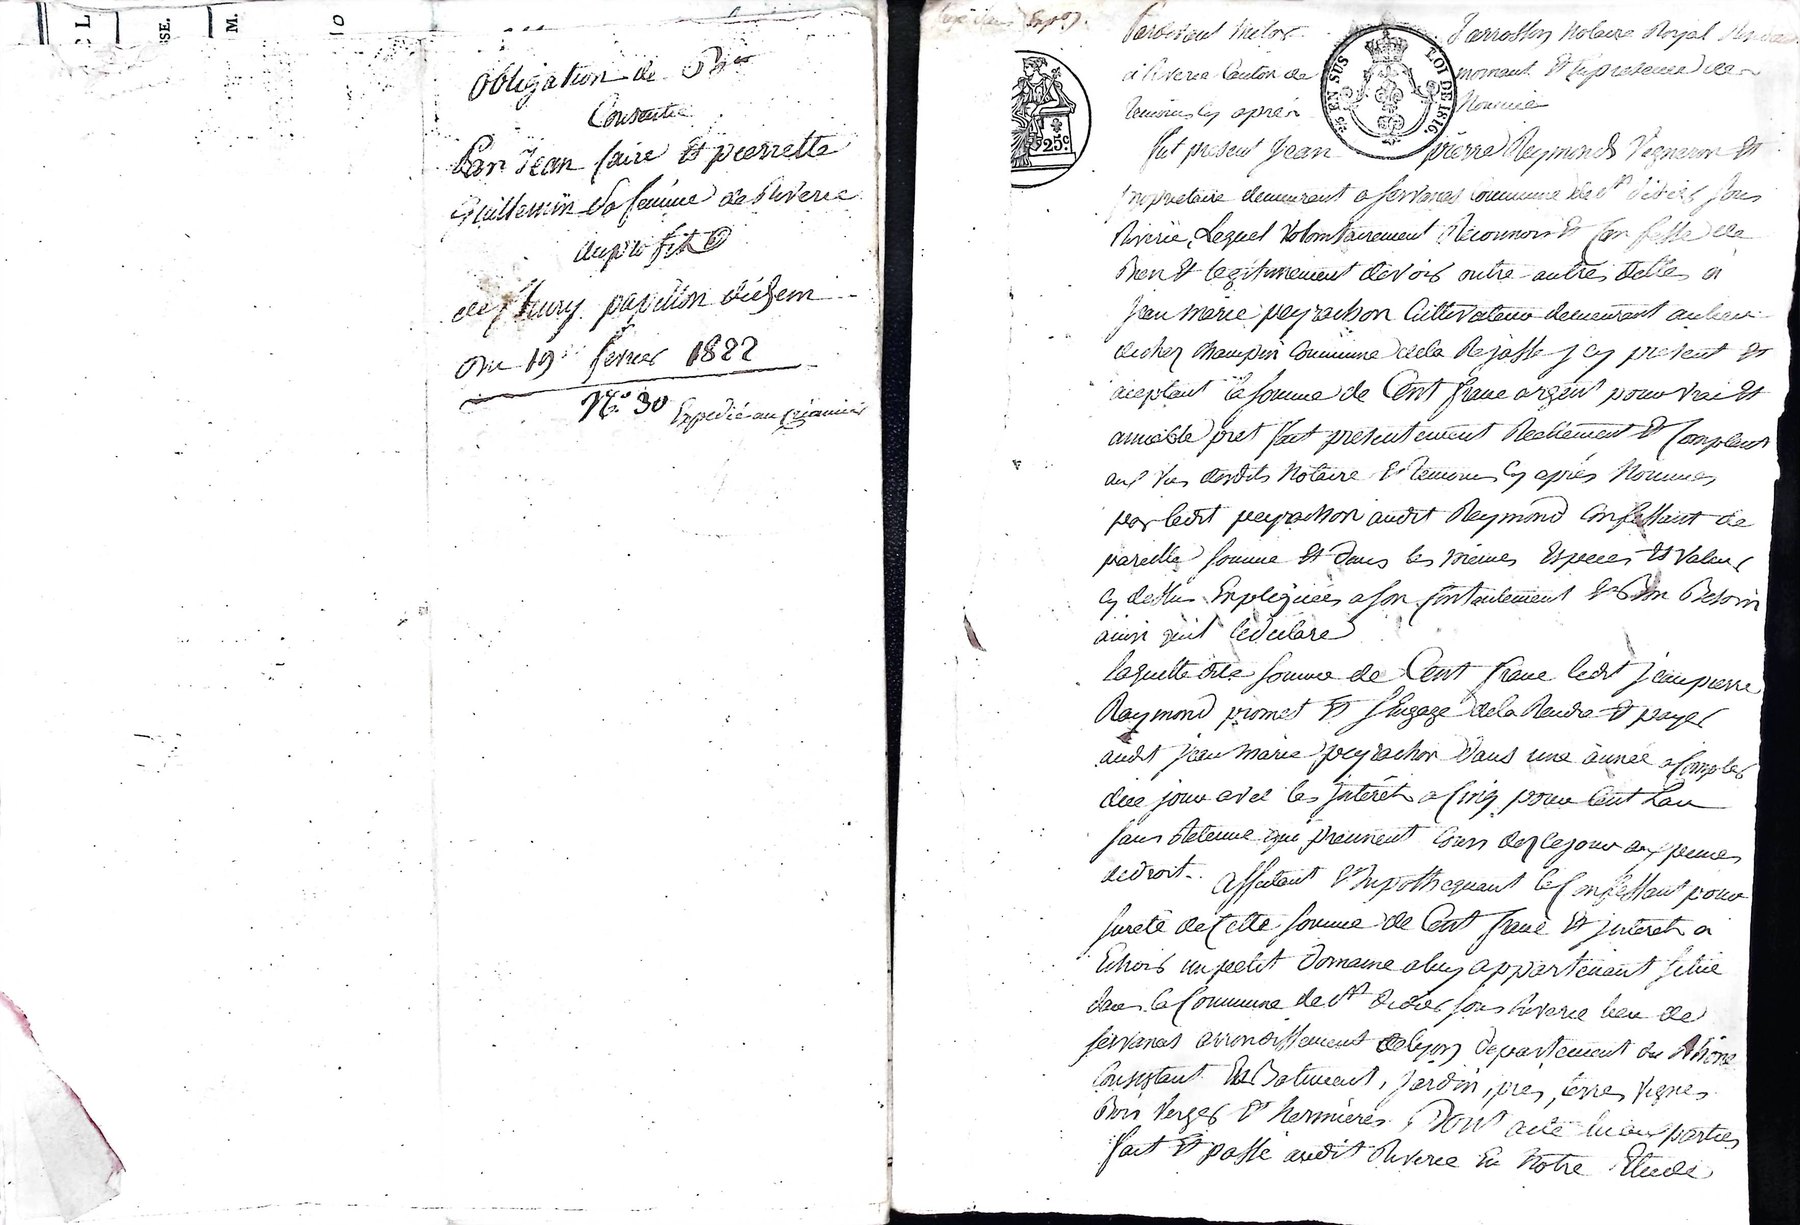 Obligation de
Consentie
Par Jean faire et pierrette
Guillemin sa femme de Riverie
au profit
de fleury papillon d'échem
Du 19 fevrier 1822
N.° 30 Expedié au créancier
Pardevant Jarrosson Notaire Royal
à Riverie Canton de mornant Et En presence des
temoins cy après Nommés
EN SUS
LOI DE 1816.
25.c
fut present Jean pierre Reymond Vigneron Et
proprietaire demeurant a servanas Commune de St didier sous
Riverie, Lequel Volontairement Reconnoit Et Confesse de
Bien Et legitimement devoir outre autres dettes à
Jean marie peyrachon Cultivateur demeurant au lieu
de chez Champin Commune de la Rajasse j cy present Et
aceptant la somme de Cent franc argent pour vrai Et
amiable pret fait presentement Reellement Et Comptant
aux vus desdits Notaire Et temoins Cy après Nommés
par ledit peyrachon audit Reymond Confessant de
pareille somme Et dans les mêmes Especes Et valeur
Cy dessus Expliquées a son Contentement Et Bon Besoin
ainsi qu'il le declare
laquelle dite somme de Cent franc ledit jean pierre
Raymond promet Et s'Engage de la Rendre Et payer
audit jean marie peyrachon Dans une année a Compter
de ce jour avec les Interêts a Cinq pour Cent L'an
sans Retenue qui prennent Cours dez ce jour aux peines
de droit. Affectant Et Hypothequant le Confessant pour
sureté de Cette somme de Cent franc Et Interets a
Echoir un petit Domaine a luy appartenant situé
dans la Commune de St didier sous Riverie lieu de
servanas arrondissement de lyon departement du Rhône
Consistant En Batiment, Jardin, prés, terres, vignes
Bois Verger Et hermières Dont acte lu aux parties
fait Et passé audit Riverie En Notre Etude